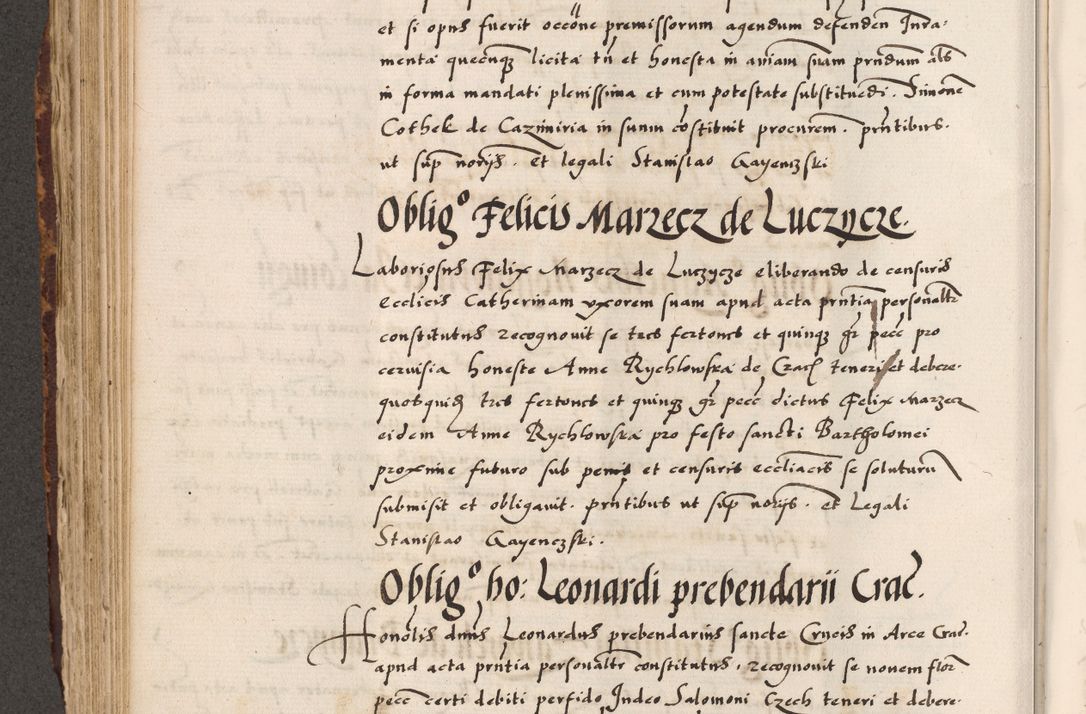 et si opus fuerit occōne premissorum agendum defenden Jura-
menta quecunqȝ licita tn̄ et honesta in aniam suam prn̄dum als
in forma mandati plenissima et cum potestate substituēdi. Simonē
Cothek de Cazimiria in suum cōstibuit procurem. prn̄tibus.
ut sup̄ norijs. Et legali Stanislao Gayenczski
Obligo Felicis Marzecz de Luczycze.
Laboriosus Felix Marzecz de Luczycze eliberando de censuris
Ecclicis Catherinam vxorem suam apud acta prn̄tia personaltr
constitutus recognouit se tres fertones et quinqȝ gr̄ pecc̄ pro
ceruisia honeste Anne Rychlowska de Crac̄ teneri et debere.
quosquid tres fertones et quinqȝ gr̄ pecc̄ dictus Felix Marzecz
eidem Anne Rychlowska pro festo sancti Bartholomei
proxime futuro sub penis et censuris eccliacis se soluturū
submisit et obligauit. prn̄tibus ut sup̄ norijs. Et Legali
Stanislao Gayenczski.
Obligo ho: Leonardi prebendarii Crac̄.
Honolis dnus Leonardus prebendarius sancte Crucis in Arce Crac̄.
apud acta prn̄tia personaltr constitutus. recognouit se nouem flor̄
pecc̄ certi debiti perfido Judeo Salomoni Czech teneri et debere.